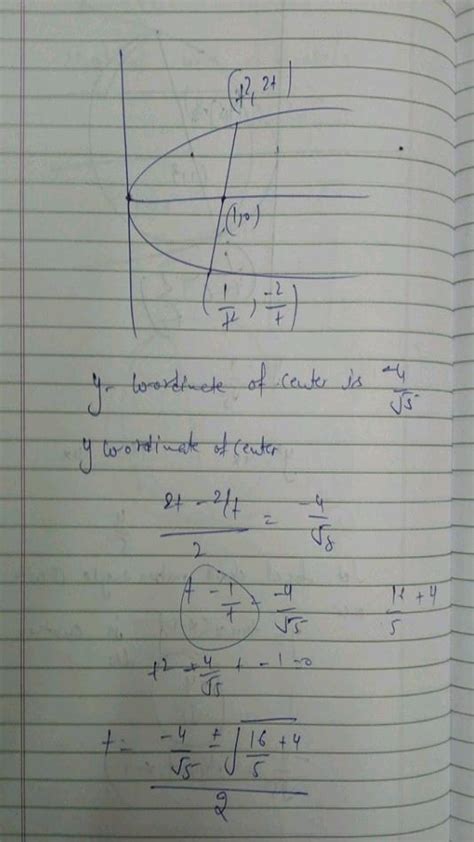 (t², 2t)
(1,0)
(1/t², -2/t)
y- coordinate of center is -4/√5
y coordinate of center
(2t - 2/t)/2 = -4/√5
t - 1/t = -4/√5
16+4/5
t² + 4/√5 t -1=0
t = (-4/√5 ± √(16/5 + 4))/2